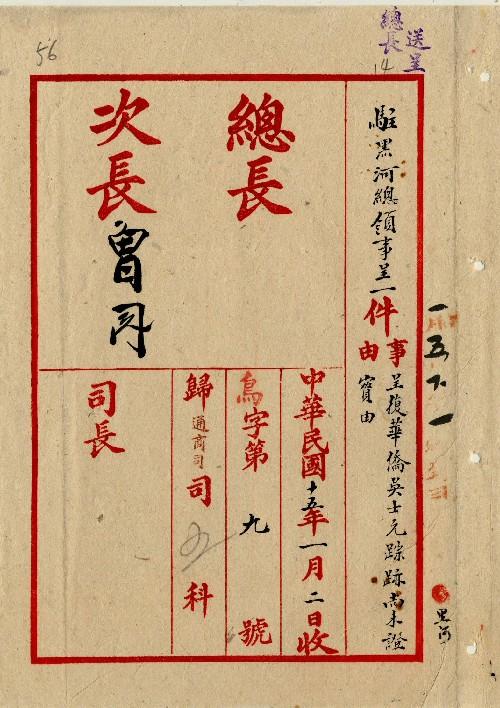 56
送呈
總長
14
駐黑河總領事呈一件
事由
呈復華僑英士元踪跡尚未證
實由
一五、下、一
黑河
總長
次長
中華民國十五年一月二日收
字第九號
歸通商司司
科
司長